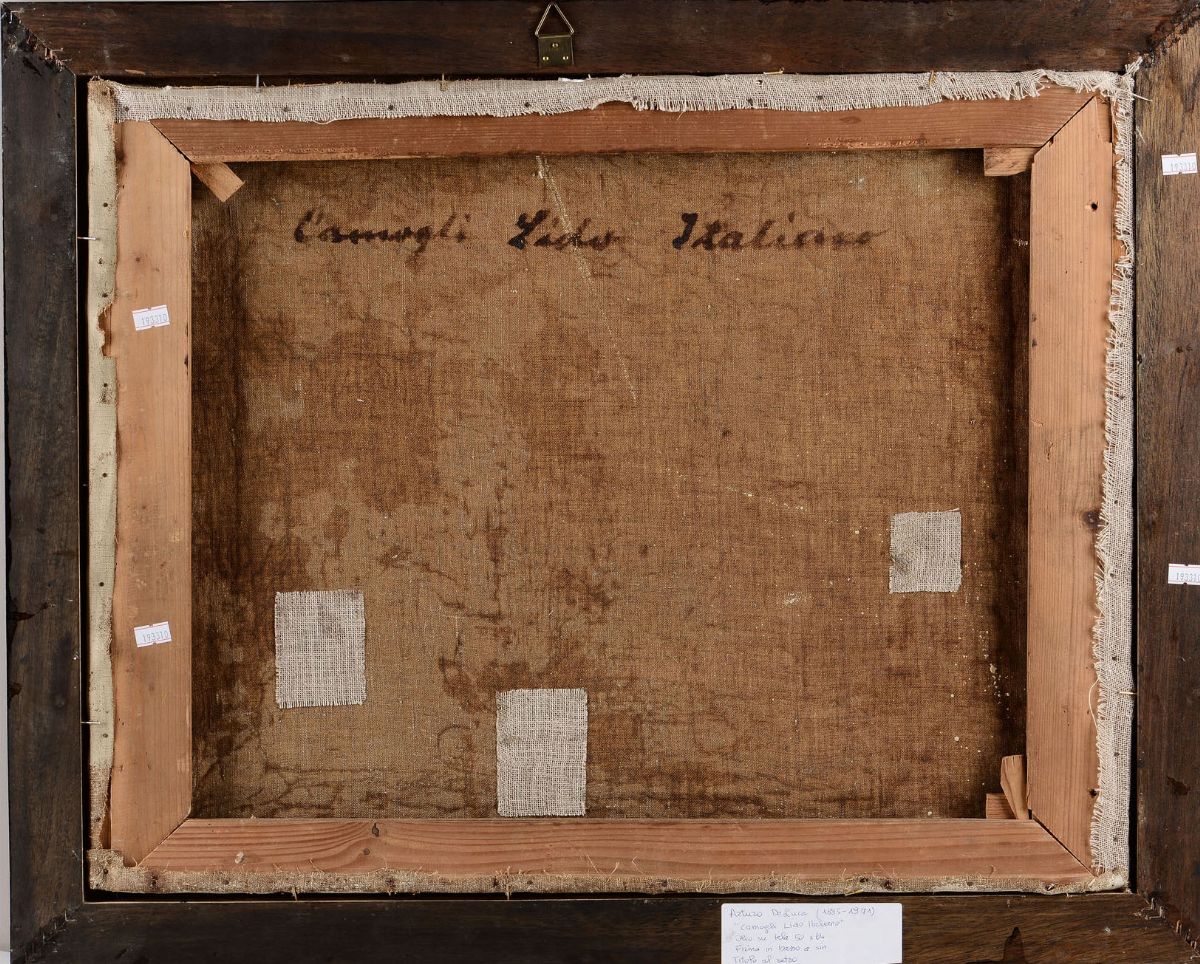 Camogli Lido Italiano
193310
193310
193310
193310
Arturo De Luca (1895-1971)
"Camogli Lido Italiano"
olio su tela 50 x 60
Firma in basso a sin
Titolo al retro